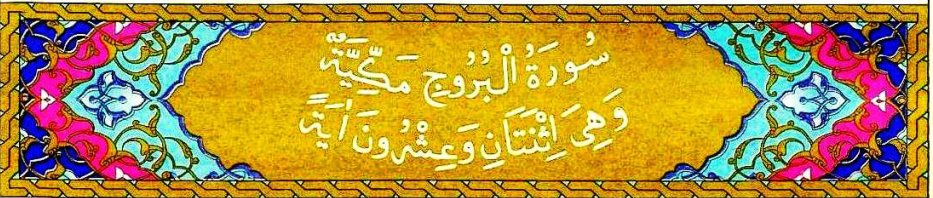 سُورَةُ الْبُرُوجِ مَكِّيَّةٌ
وَهِيَ اِثْنَتَانِ وَعِشْرُونَ اٰيَةً